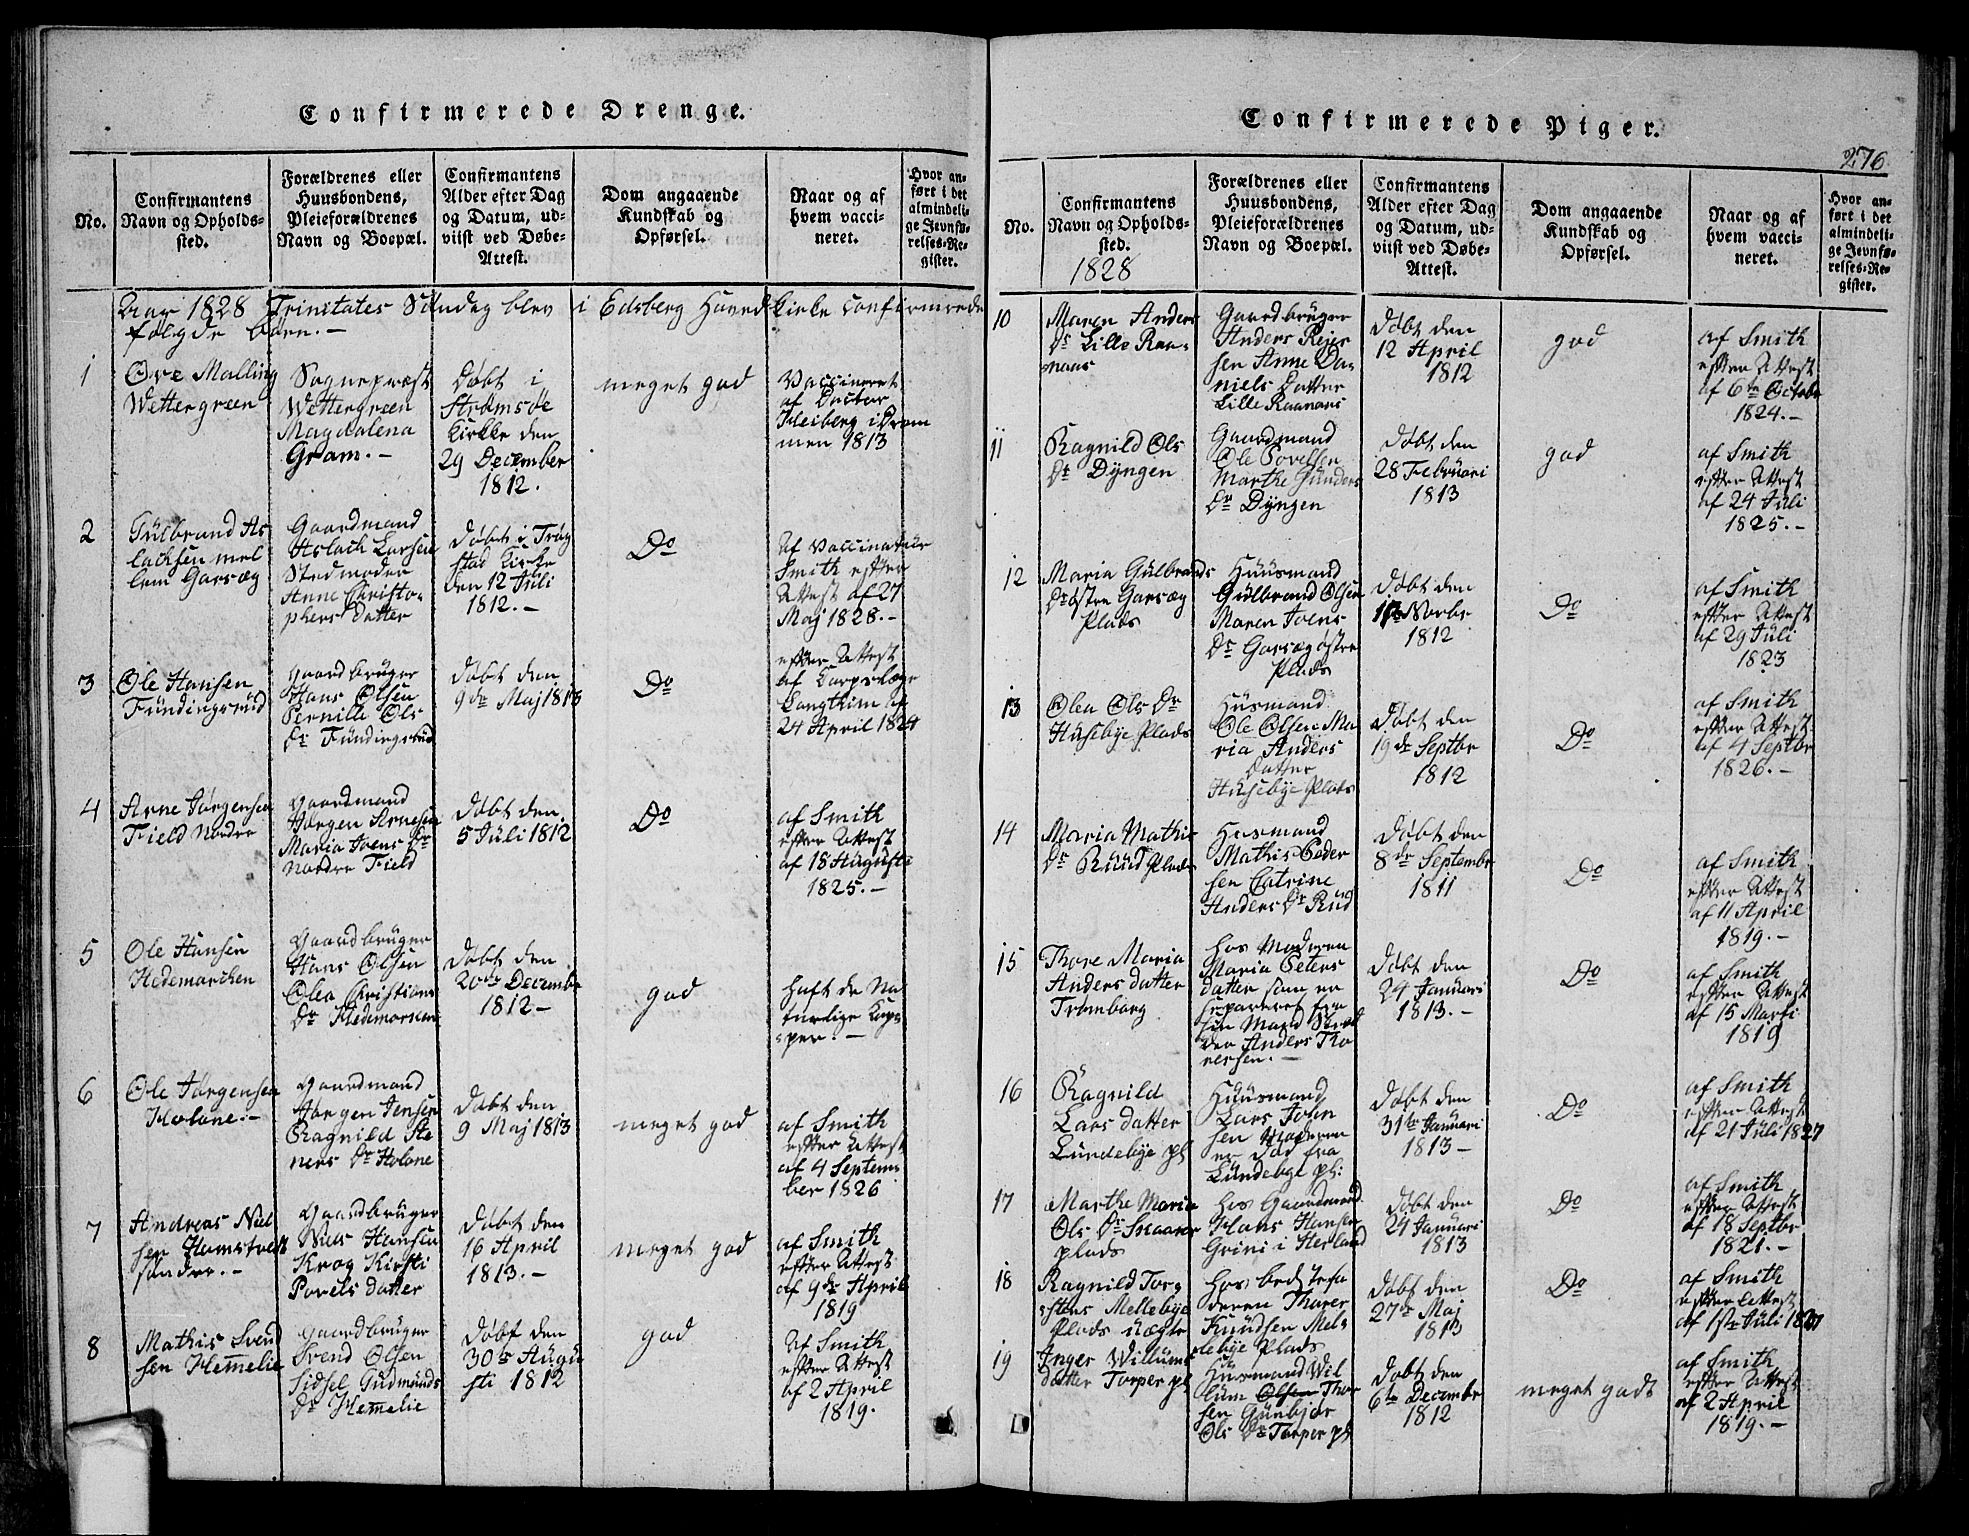 Confirmerede Drenge.
No.
Confirmantens
Navn og Opholds-
sted.
Forældrenes eller
Huusbondens,
Pleieforældrenes
Navn og Boepæl.
Confirmantens
Alder efter Dag
og Datum, ud-
viist ved Døbe-
Attest.
Dom angaaende
Kundskab og
Opførsel.
Naar og af
hvem vacci-
neret.
Hvor an-
ført i det
almindeli-
ge Jevnfø-
relses-Re-
gister.
Aar 1828 Trinitates Søndag blev i Edsberg Hoved Kirke confirmerede
følgde børn.-
1
Ove Malling
Wettergreen
Sognepræst
Wettergreen
Magdalena
Gram.-
Døbt i
Strømsøe
Kirkke den
29 December
1812.
meget god
Vaccineret
af Doctor
Heiberg i Dram
men 1813
2
Gulbrand As
lachsen mel
lem Garsæg
Gaardmand
Aslach Larsen
Stedmoder
Anne Christo-
phers datter
døbt i Trøg
stad Kirke
den 12 Juli
1812.-
Do
Af Vaccinatør
Smith efter
Attest af 27
Maj 1828.-
3
Ole Hansen
Fundingsrud
gaardbruger
Hans Olsen
Pernille Ols
Dr Fundingsrud
døbt den
9de Maj 1813
Do
efter Attest
af Corpslæge
Langthim af
24 April 1824
4
Arne Jørgensen
Field Nordre
gaardmand
Jørgen Arnesen
Maria Joens Dr
Nordre Field
døbt den
5 Juli 1812
Do
af Smith
efter Attest
af 18 Augusti
1825.-
5
Ole Hansen
Hedemarchen
gaardbruger
Hans Olsen
Olea Christians
Dr Hedemarken
døbt den
20de Decembr
1812-
god
haft de Na
turlige Kop
per.-
6
Ole Jørgensen
Holone.-
gaardmand
Jørgen Jensen
Ragnild Ste
ners Dr Holone
døbt den
9 Maj 1813
meget god
af Smith
efter Attest
af 4 Septem
ber 1826
7
Andreas Niel
sen Homstvedt
søndre.-
gaardbruger
Niels Hansen
Krog Kirsti
Povels datter
døbt den
16 April
1813.-
meget god
af Smith
efter Attest
af 9de April
1819
8
Mathis Svend
sen Hemmelie
gaardbruger
Svend Olsen
Sidsel Gudmunds
Dr Hemmelie
døbt den
30te Augu
sti 1812
god
Af Smith
efter Attest
af 2 April
1819.
Confirmerede Piger.
276
No.
Confirmantens
Navn og Opholds-
sted.
1828
Forældrenes eller
Huusbondens,
Pleieforældrenes
Navn og Boepæl.
Confirmantens
Alder efter Dag
og Datum, ud-
viist ved Døbe-
Attest.
Dom angaaende
Kundskab og
Opførsel.
Naar og af
hvem vacci-
neret.
Hvor an-
ført i det
almindeli-
ge Jevnfø-
relses-Re-
gister.
10
Maren Anders
Dr Lille Raa-
naas
Gaardbruger
Anders Reier
sen Anne Da
niels Datter
Lille Raanaas
Døbt den
12 April
1812
god
af Smith
efter Attest
af 6te Octobr
1824.-
11
Ragnild Ols
Dr Dyngen
Gaardmand
Ole Povelsen
Marthe Gunders
Dr Dyngen
døbt den
28 Februari
1813
god
af Smith
efter Attest
af 24 Juli
1825.-
12
Maria Gulbrands
Dr østre Garsæg
Plads
Huusmand
Gulbrand Olsen
Maren Joens
Dr Garsæg østre
Plads
døbt den
Novbr
1812
Do
af Smith
efter Attest
af 29 Juli
1823
13
Olea Ols Dr
Husebye Plads
Husmand
Ole Olsen Ma
ria Anders
Datter
Husebye Plads
døbt den
19de Septbr
1812
Do
af Smith
efter Attest
af 4 Septbr
1826.-
14
Maria Mathis
Dr Ruud Plads
Husmand
Mathis Peder
sen Catrine
Anders Dr Rud
døbt den
8de Septembr
1811
Do
af Smith
efter Attest
af 11 April
1819.-
15
Thore Maria
Anders datter
Trømborg
hos Moderen
Maria Peters
datter som er
separeret fra
sin Mand
Anders Tho
resen.-
døbt den
24 Januari
1813.-
Do
af Smith
efter Attest
af 15 Marti
1819
16
Ragnild
Lars datter
Lundebye pl
Huusmand
Lars John
sen Moderen
er død fra
Lundebye pl:
døbt den
31te Januari
1813-
Do
af Smith
efter Attest
af 21 Juli 1827
17
Marthe Maria
Ols Dr Snaarer
plads
hos Gaardmand
Hans Hansen
Grini i Herland
døbt den
24 Januari
1813
Do
af Smith
efter Attest
af 18 Septbr
1821.-
18
Ragnild Torg
stens Mellebye
Plads uægte
hos bedstefa
deren Tharer
Knudsen Mel-
lebye Plads
døbt den
27de Maj
1813
Do
af Smith
efter Attest
af 1ste Juli
19
Inger Willums
datter Torper pl
Husmand Wil
lum Olsen Thor
sen Gunbjør
Ols Dr Torper pl
døbt den
6te Decembr
1812
meget godt
af Smith
efter Attest
af 2 April
1819.-